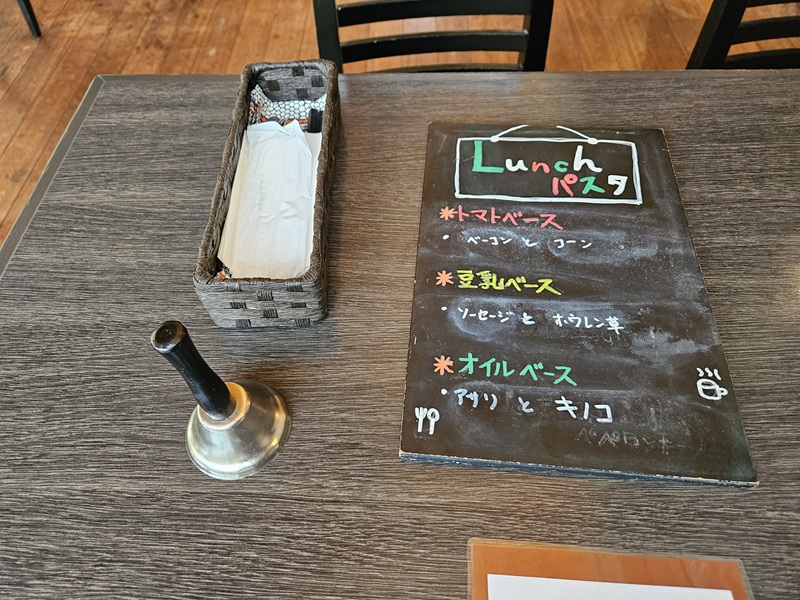 Lunch
パスタ
*トマトベース
・ベーコン と コーン
*豆乳ベース
・ソーセージ と ホウレン草
*オイルベース
・アサリ と キノコ